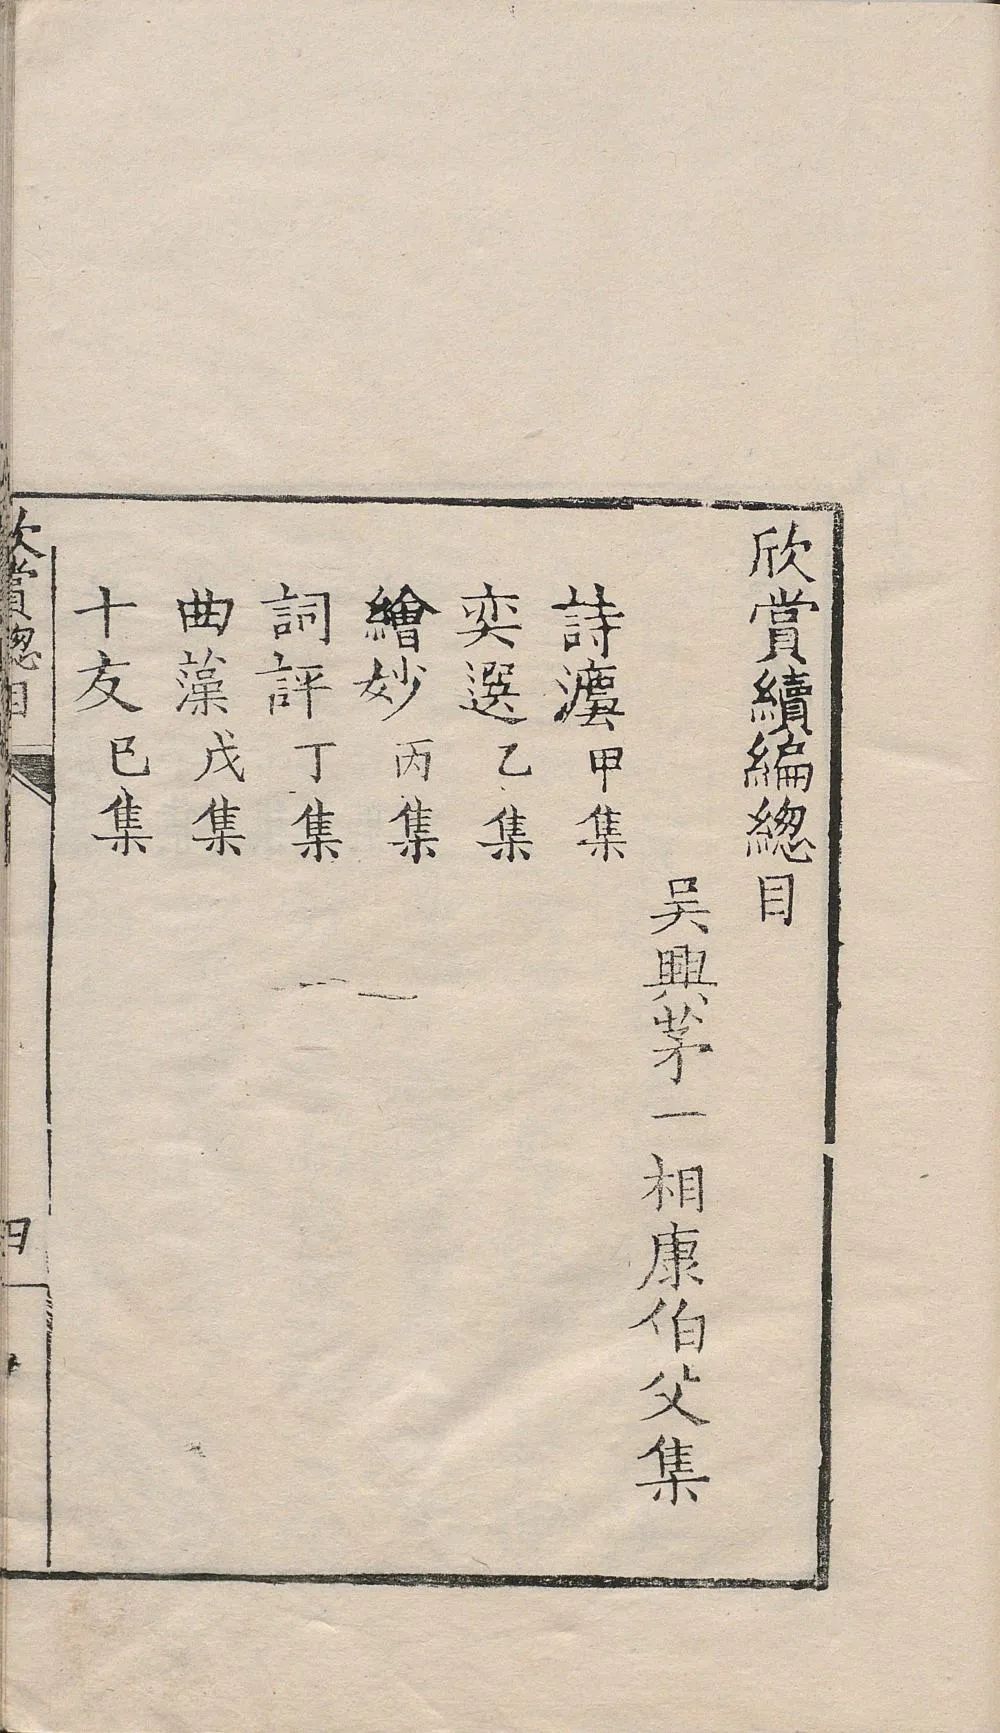 欣賞續編總目
吳興茅一相康伯父集
詩灋甲集
奕選乙集
繪妙丙集
詞評丁集
曲藻戊集
十友巳集
欣賞總目
四